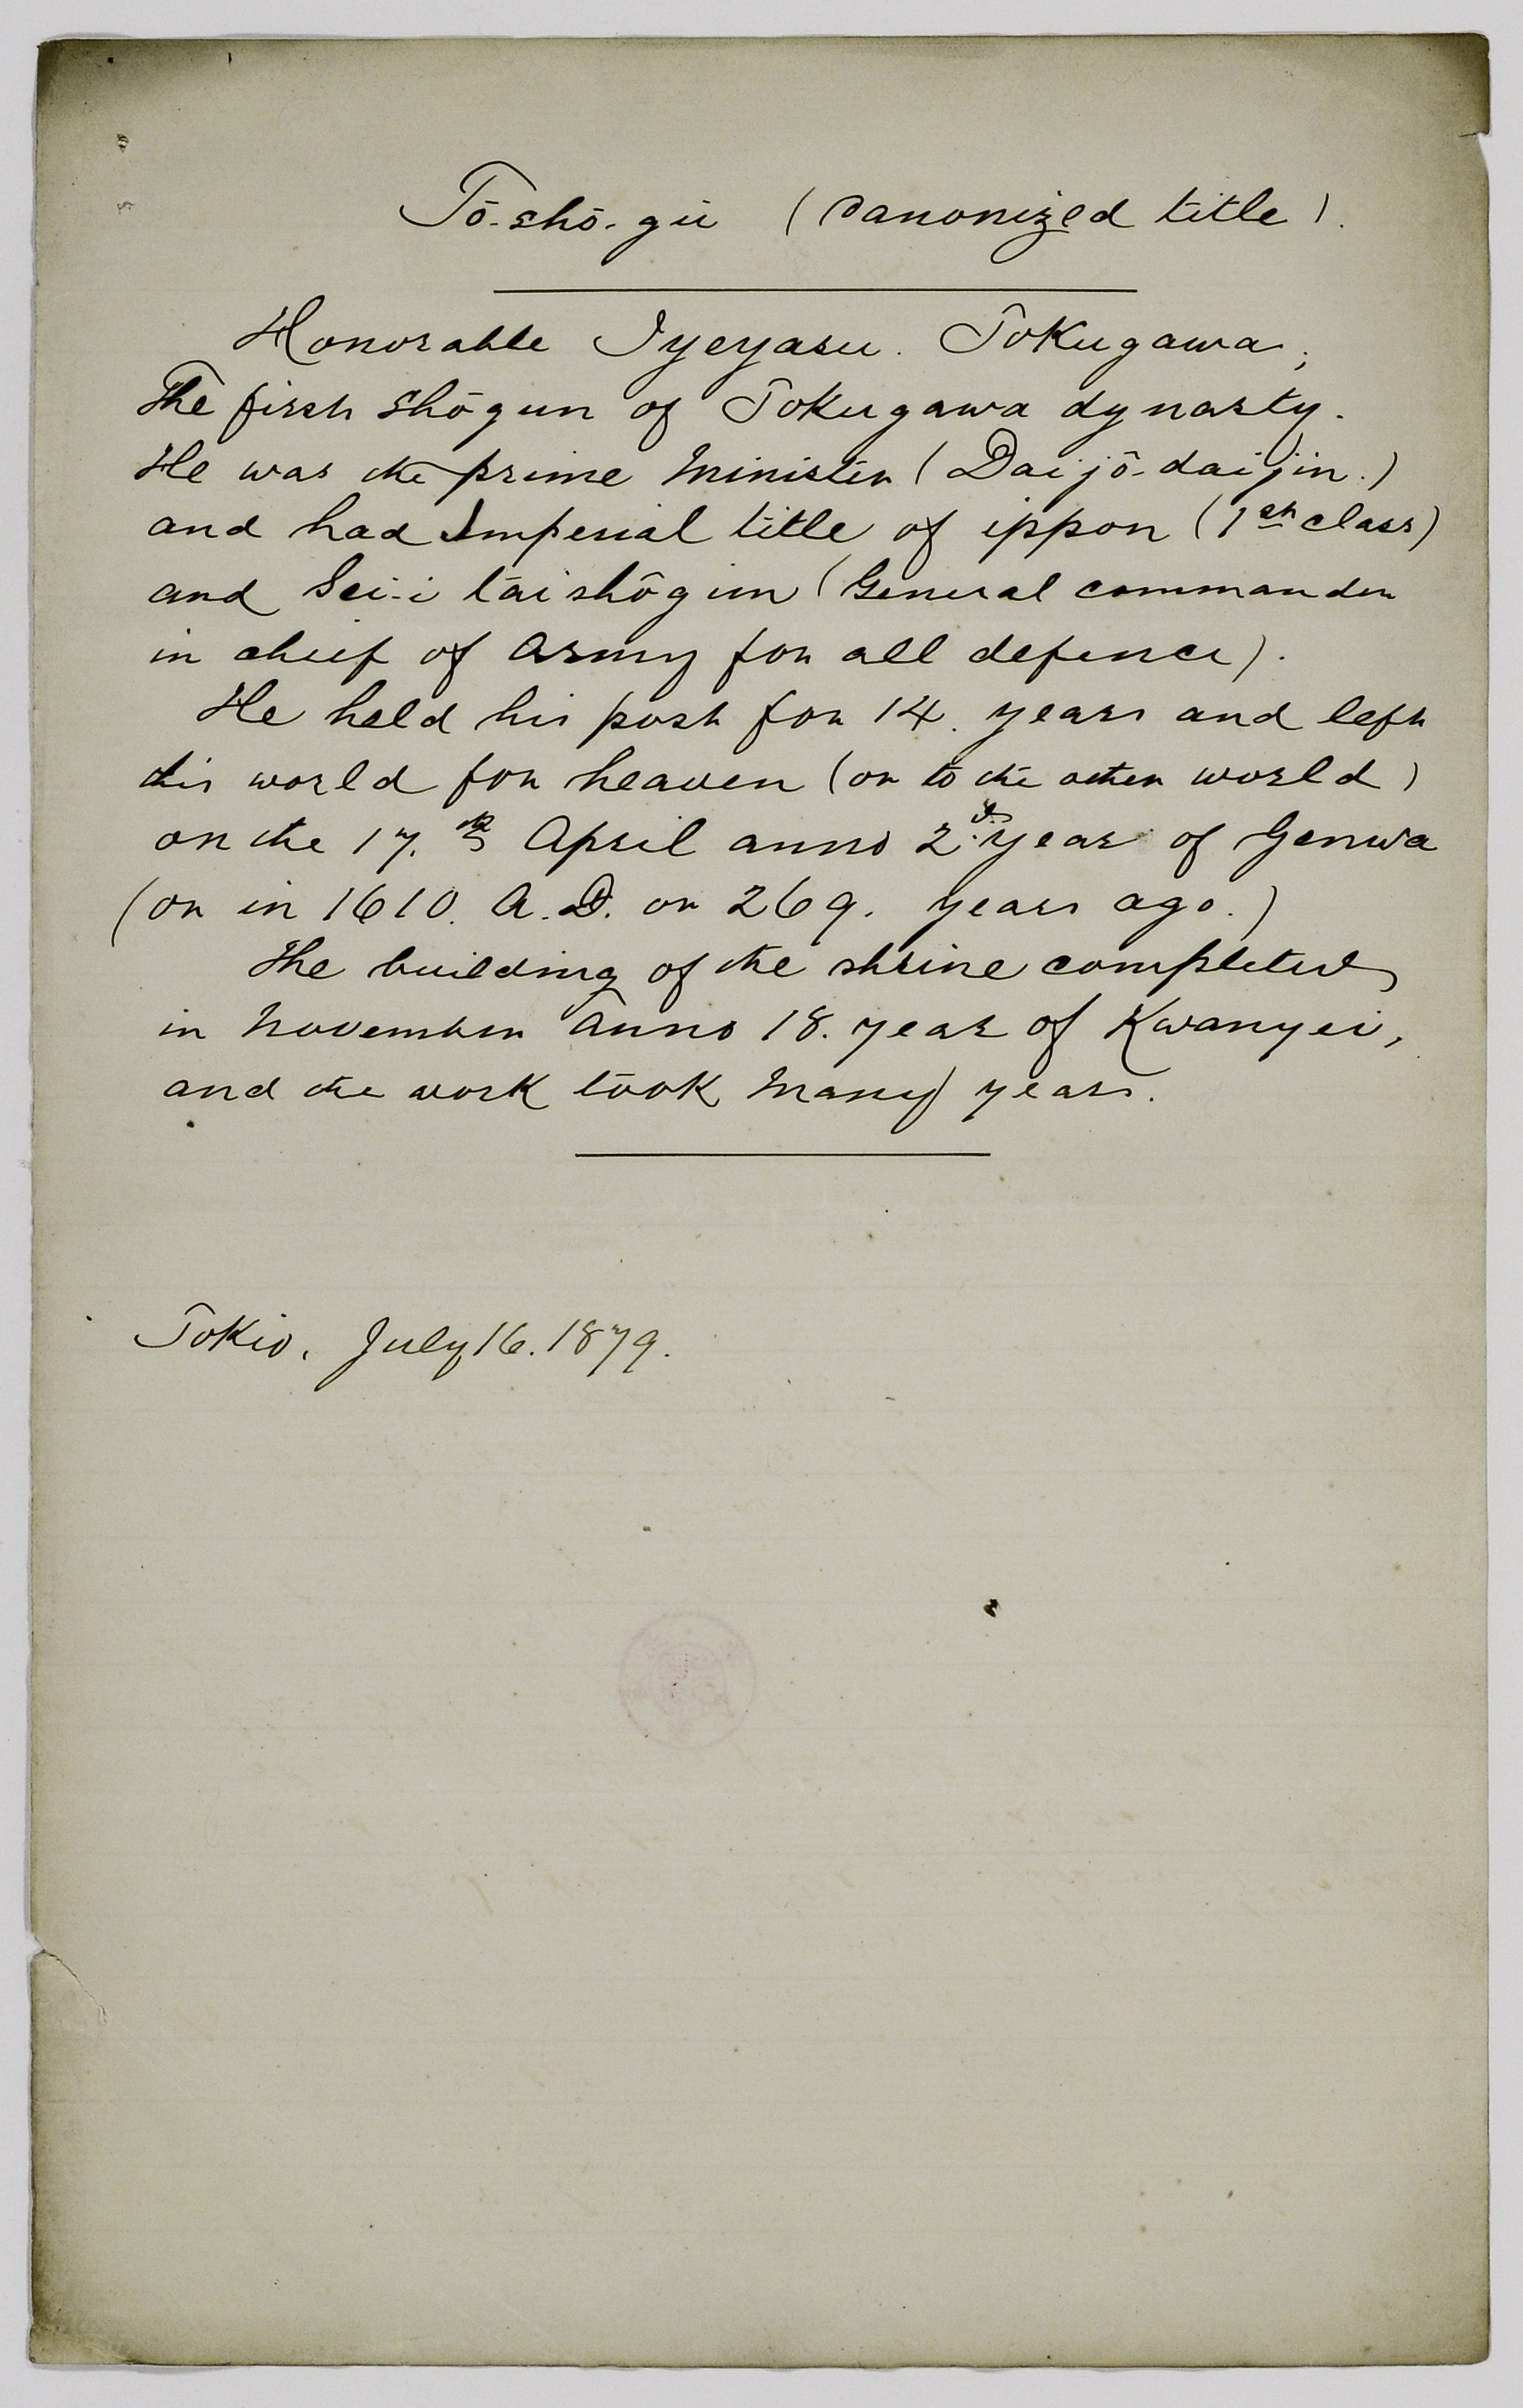 Tō-shō-gū (Canonized title).
Honorable Iyeyasu. Tokugawa,
The first Shōgun of Tokugawa dynasty.
He was the prime Minister (Daijō-daijin.)
and had Imperial title of ippon (1st class)
and Sei-i tai shōgun (General commander
in cheif of Army for all defence).
He held his post for 14. years and left
this world for heaven (or to the other world)
on the 17.th April anno 2d. year of Genwa
(or in 1610. A.D. or 269. years ago.)
The building of the shrine completed
in November Anno 18. year of Kwanyei,
and the work took many years.
Tokio. July 16. 1879.